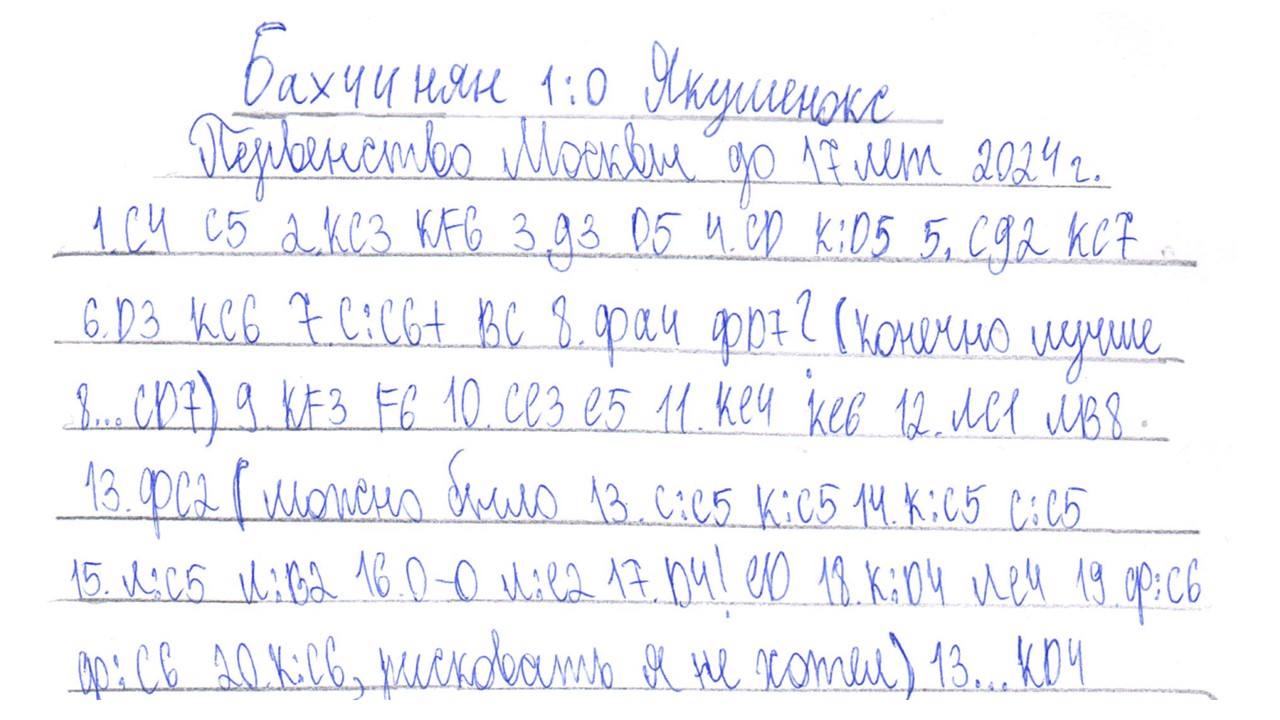 Бахчинян 1:0 Якушенокс
Первенство Москвы до 17 лет 2024г.
1.С4 С5 2.КС3 КF6 3.g3 D5 4.CD К:D5 5.Сg2 КС7
6.D3 КС6 7.С:С6+ ВС 8.Фа4 ФD7? (конечно лучше
8...СD7) 9.КF3 F6 10.Се3 е5 11.Ке4 Ке6 12.ЛС1 ЛВ8
13.ФС2 (можно было 13.С:С5 К:С5 14.К:С5 С:С5
15.Л:С5 Л:В2 16.0-0 Л:е2 17.D4! еD 18.К:D4 Ле4 19.Ф:С6
Ф:С6 20.К:С6, рисковать я не хотел) 13...КD4